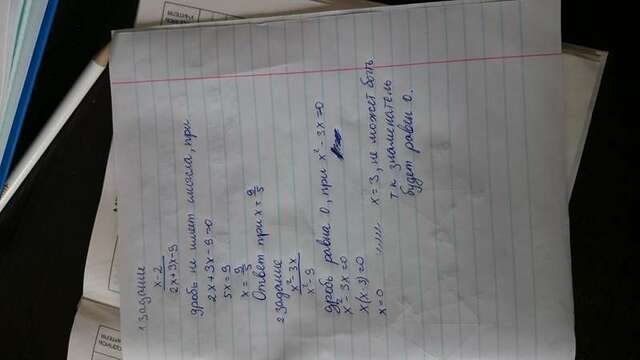 1 задание
x-2
2x+3x-9
дробь не имеет смысла, при
2x+3x-9=0
5x=9
x = 9/5
Ответ при x = 9/5
2 задание
x²-3x
x²-9
дробь равна 0, при x²-3x=0
x²-3x=0
x(x-3)=0
x=0 x=3, не может быть
т.к знаменатель
будет равен 0.